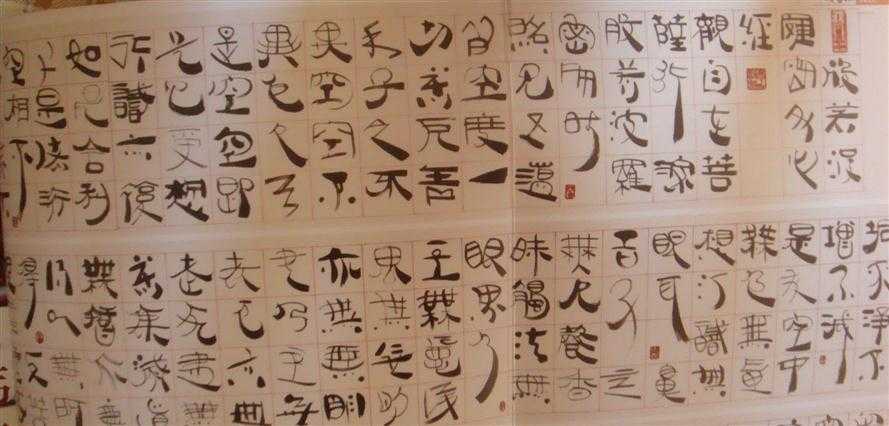 般若波
羅密多心
經
觀自在菩
薩行深
般若波羅
密多時
照見五蘊
皆空度一
切苦厄舍
利子色不
異空空不
異色色即
是空空即
是色受想
行識亦復
如是舍利
子是諸法
空相不
垢不淨不
增不減
是故空中
無色無受
想行識無
眼耳鼻
舌身意
無色聲香
味觸法無
眼界乃
至無意識
界無無明
亦無無明
盡乃至無
老死亦無
老死盡無
苦集滅道
無智亦無
得以無所
得故菩